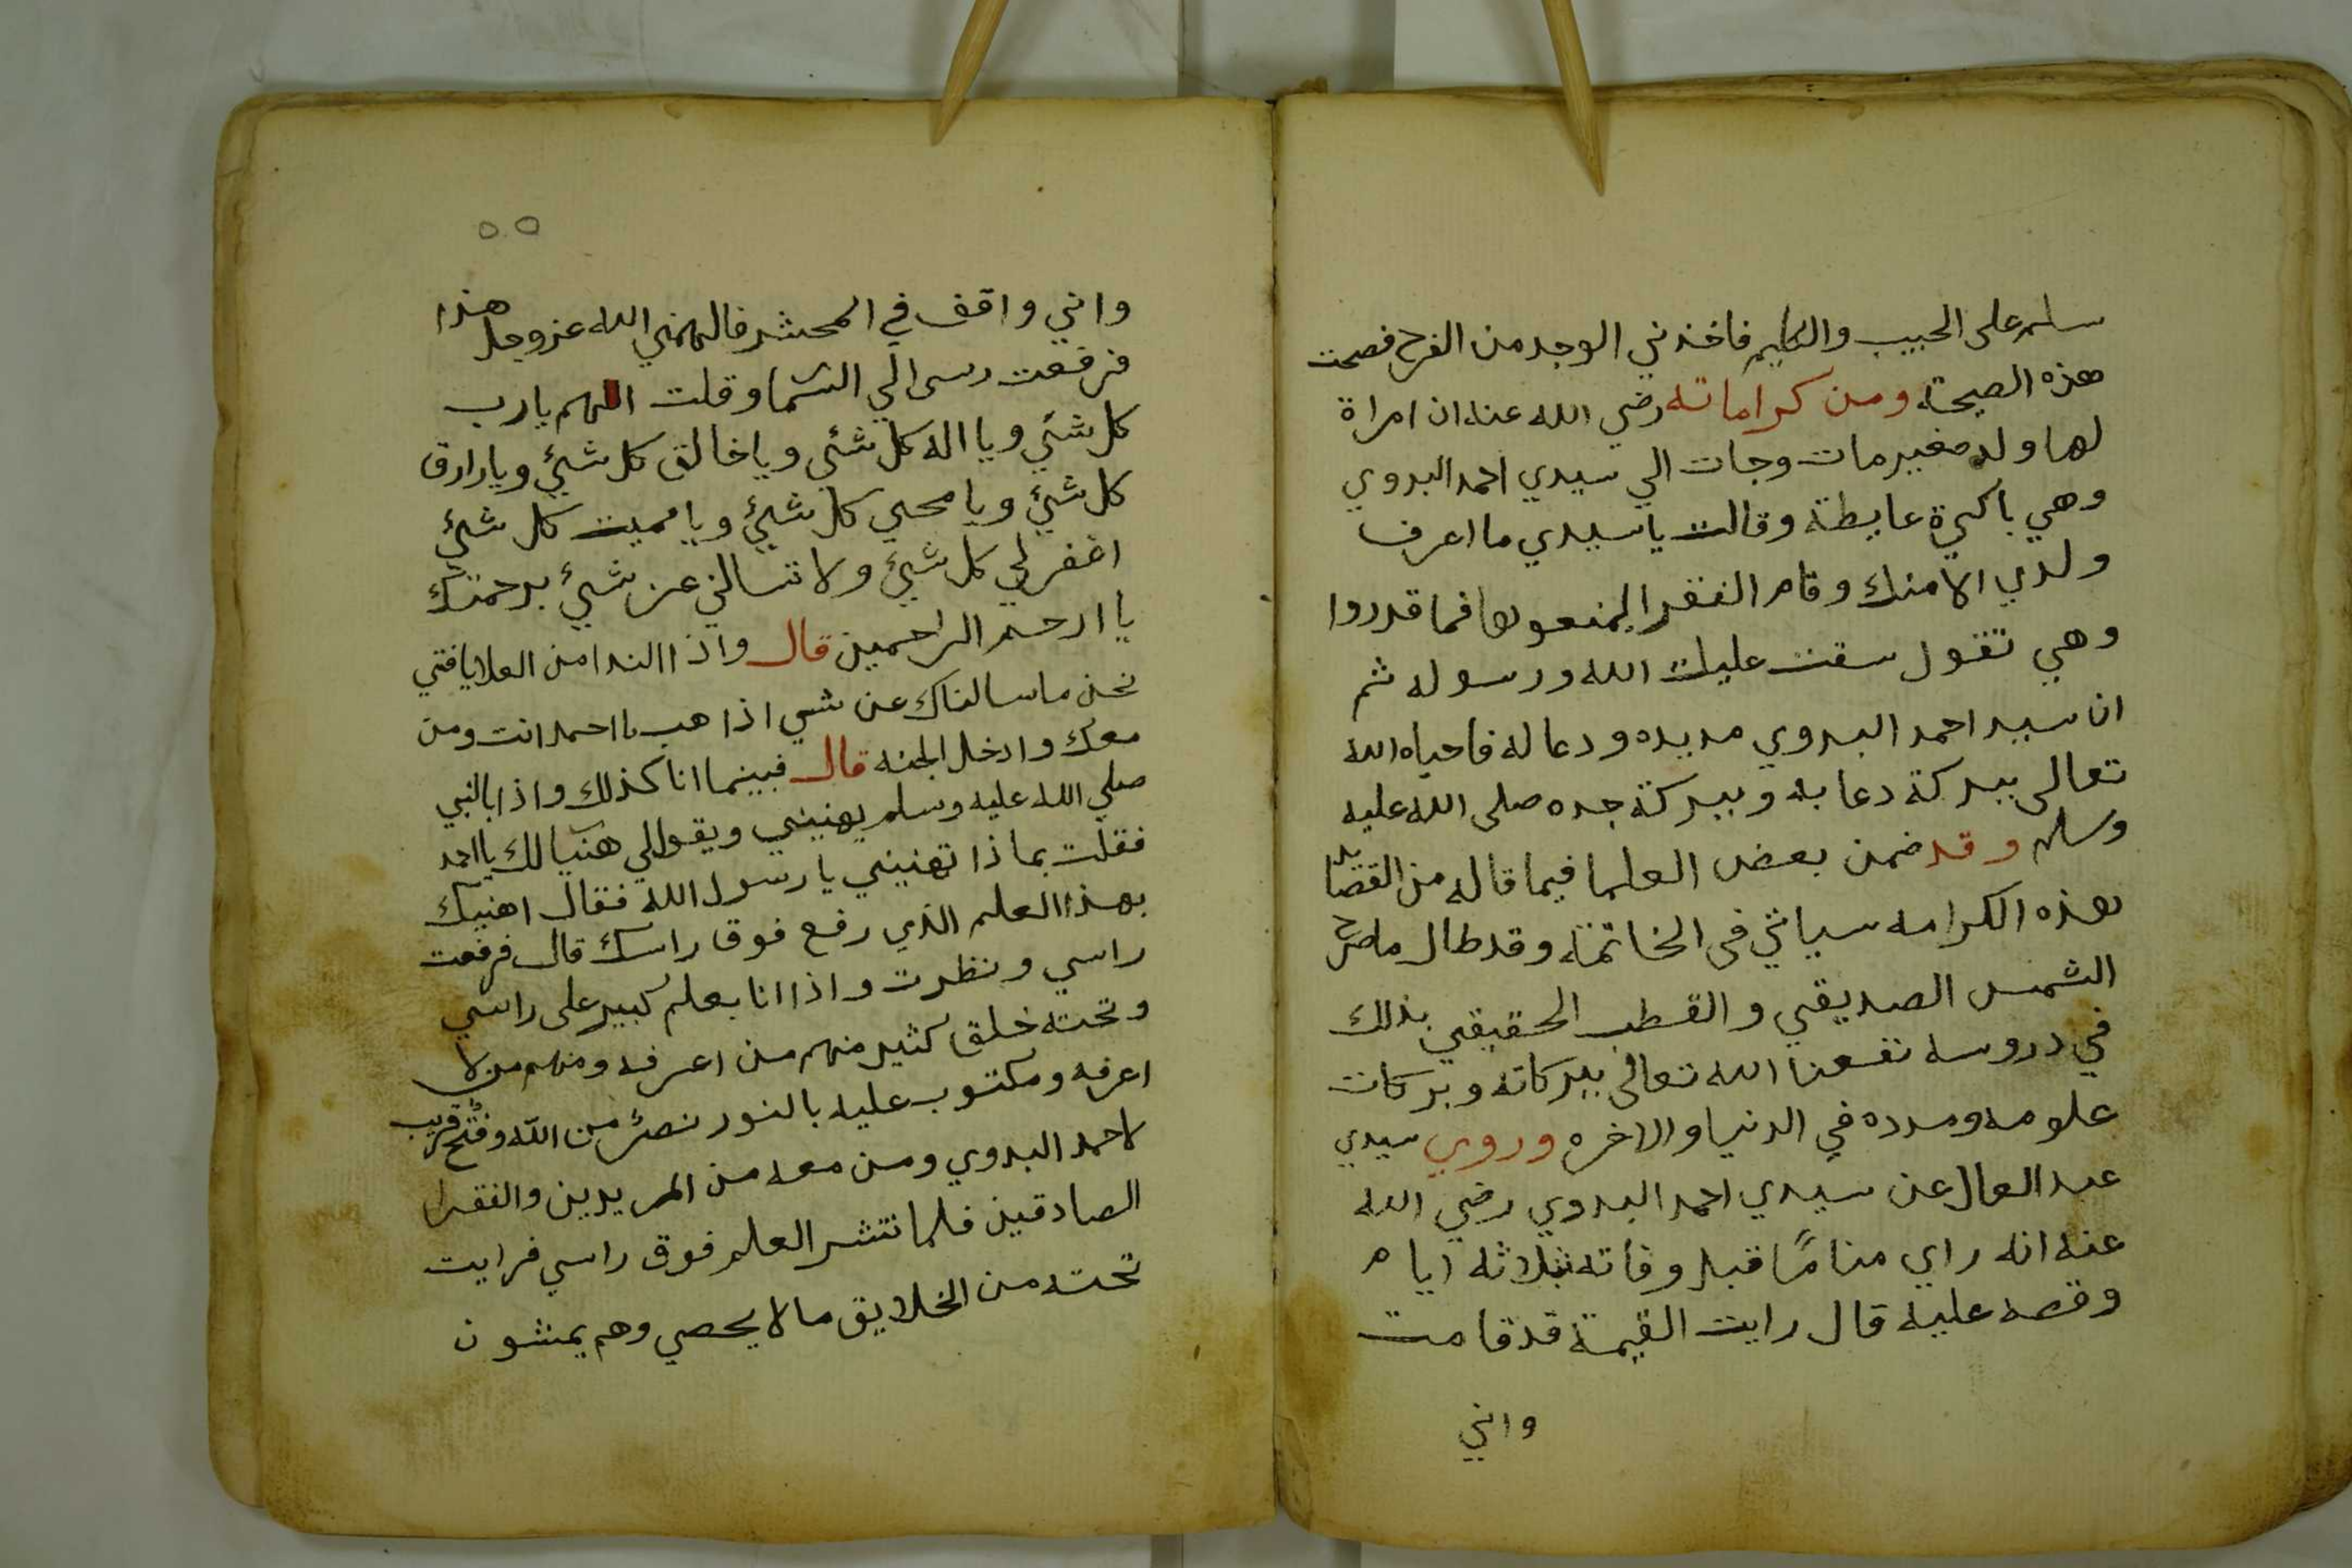 سلم على الحبيب والكليم فاخذني الوجد من الفرح فصحت
هذه الصيحة ومن كراماته رضي الله عنه ان امراة
لها ولد صغير مات وجات الي سيدي احمد البدوي
وهي باكية عايطة وقالت ياسيدي ما اعرف
ولدي الا منك وقام الفقرا ليمنعوها فما قدروا
وهي تقول سقت عليك الله ورسوله ثم
ان سيد احمد البدوي مد يده ودعا له فاحياه الله
تعالى ببركة دعايه وببركة جده صلى الله عليه
وسلم وقد ضمن بعض العلما فيما قاله من القصايد
هذه الكرامه سياتي في الخاتمة وقد طال ما صرح
الشمس الصديقي والقطب الحقيقي بذلك
في دروسه نفعنا الله تعالى ببركاته وبركات
علومه ومدده في الدنيا والاخره وروي سيدي
عبد العال عن سيدي احمد البدوي رضي الله
عنه انه راي مناما قبل وفاته بثلاثه ايام
وقصه عليه قال رايت القيمة قد قامت
واني
٥٥
واني واقف في المحشر فالهمني الله عز وجل هذا
فرفعت رسى الي السما وقلت اللهم يارب
كل شئي ويا اله كل شئي وياخالق كل شيئ ويارازق
كل شيئ ويا محيي كل شيئ ويا مميت كل شيئ
اغفر لي كل شيئ ولا تسالني عن شيئ برحمتك
يا ارحم الراحمين قال واذا الندا من العلا يافتي
نحن ما سالناك عن شي اذاهب يا احمد انت ومن
معك وادخل الجنه قال فبينما انا كذلك واذا بالنبي
صلي الله عليه وسلم يهنيني ويقول لي هنيا لك يا احمد
فقلت بماذا تهنيني يا رسول الله فقال اهنيك
بهذا العلم الذي رفع فوق راسك قال فرفعت
راسي ونظرت واذا انا بعلم كبير على راسي
وتحته خلق كثير منهم من اعرفه ومنهم من لا
اعرفه ومكتوب عليه بالنور نصر من الله وفتح قريب
لاحمد البدوي ومن معه من المريدين والفقرا
الصادقين فلما نتشر العلم فوق راسي فرايت
تحته من الخلايق ما لا يحصي وهم يمشون